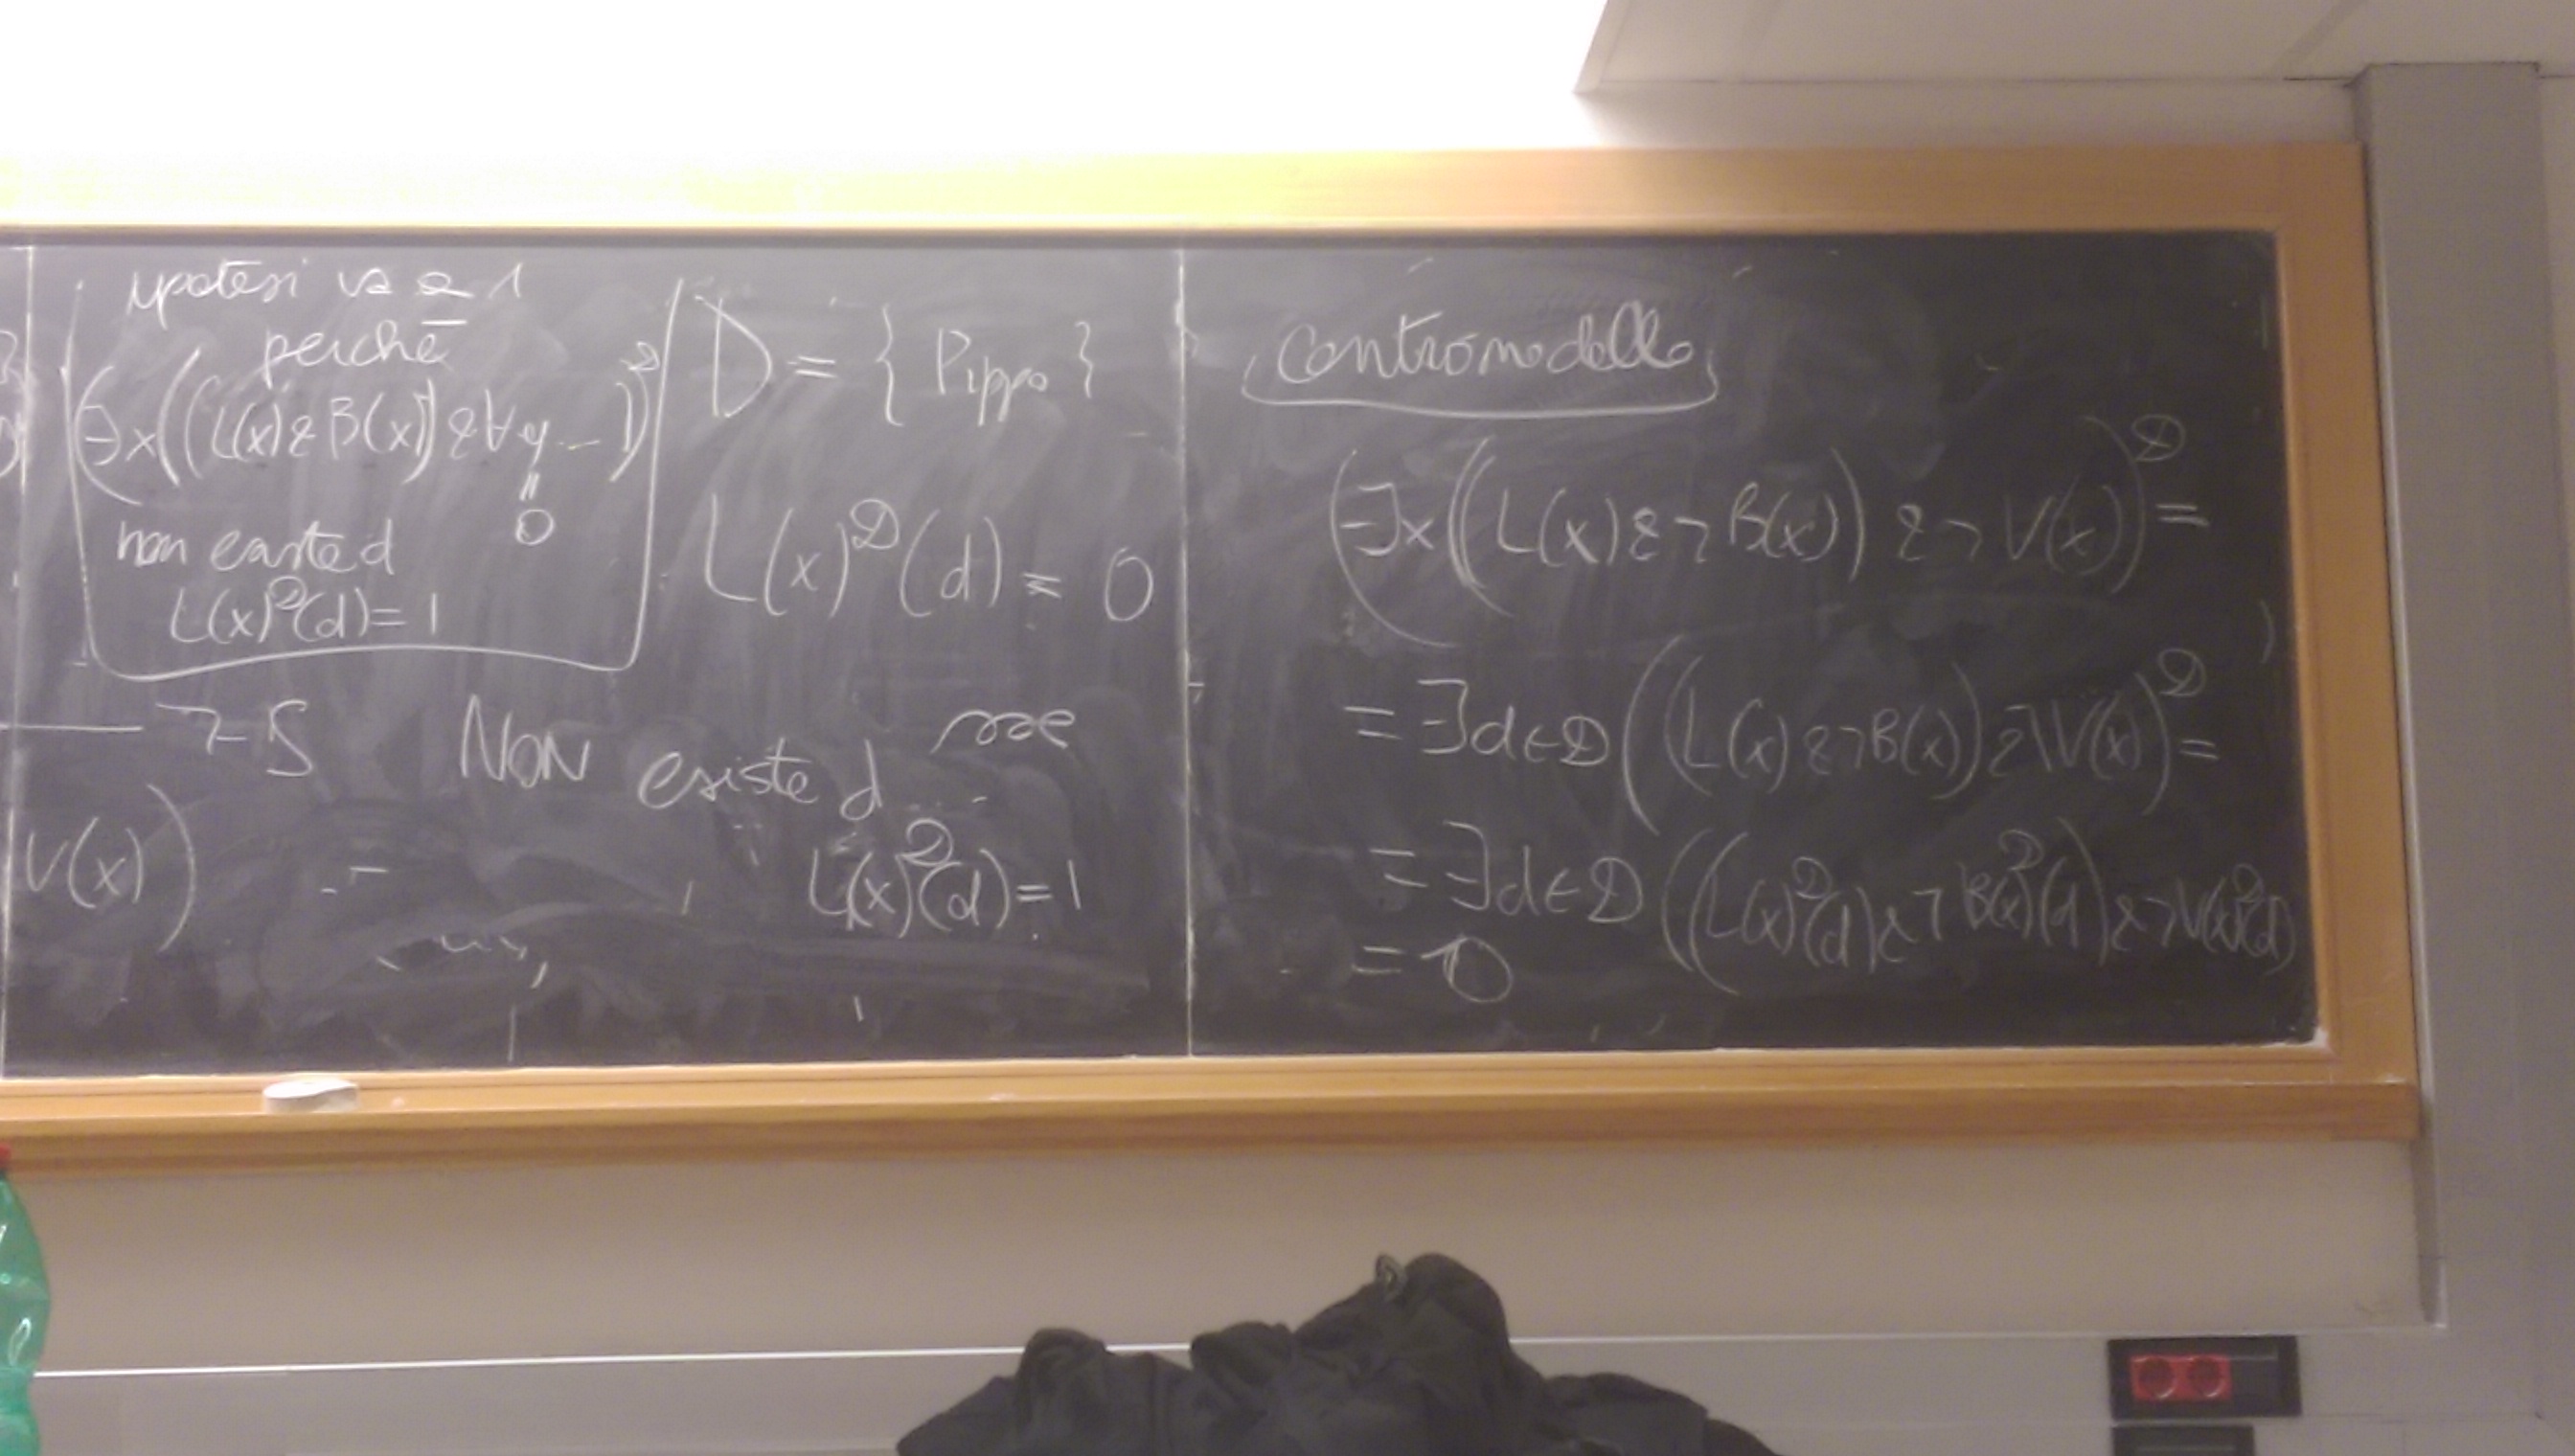 ipotesi va a 1
perchè
(∃x((L(x)&B(x))&∀y...))ᴰ
"
0
non esiste d
L(x)ᴰ(d)=1
V(x))
D = { Pippo }
L(x)ᴰ(d) = 0
NON esiste d
L(x)ᴰ(d)=1
contromodello
(∃x((L(x)&¬B(x))&¬V(x)))ᴰ =
= ∃d∈D((L(x)&¬B(x))&¬V(x))ᴰ =
= ∃d∈D((L(x)ᴰ(d)&¬B(x)ᴰ(d))&¬V(x)ᴰ(d)
= 0